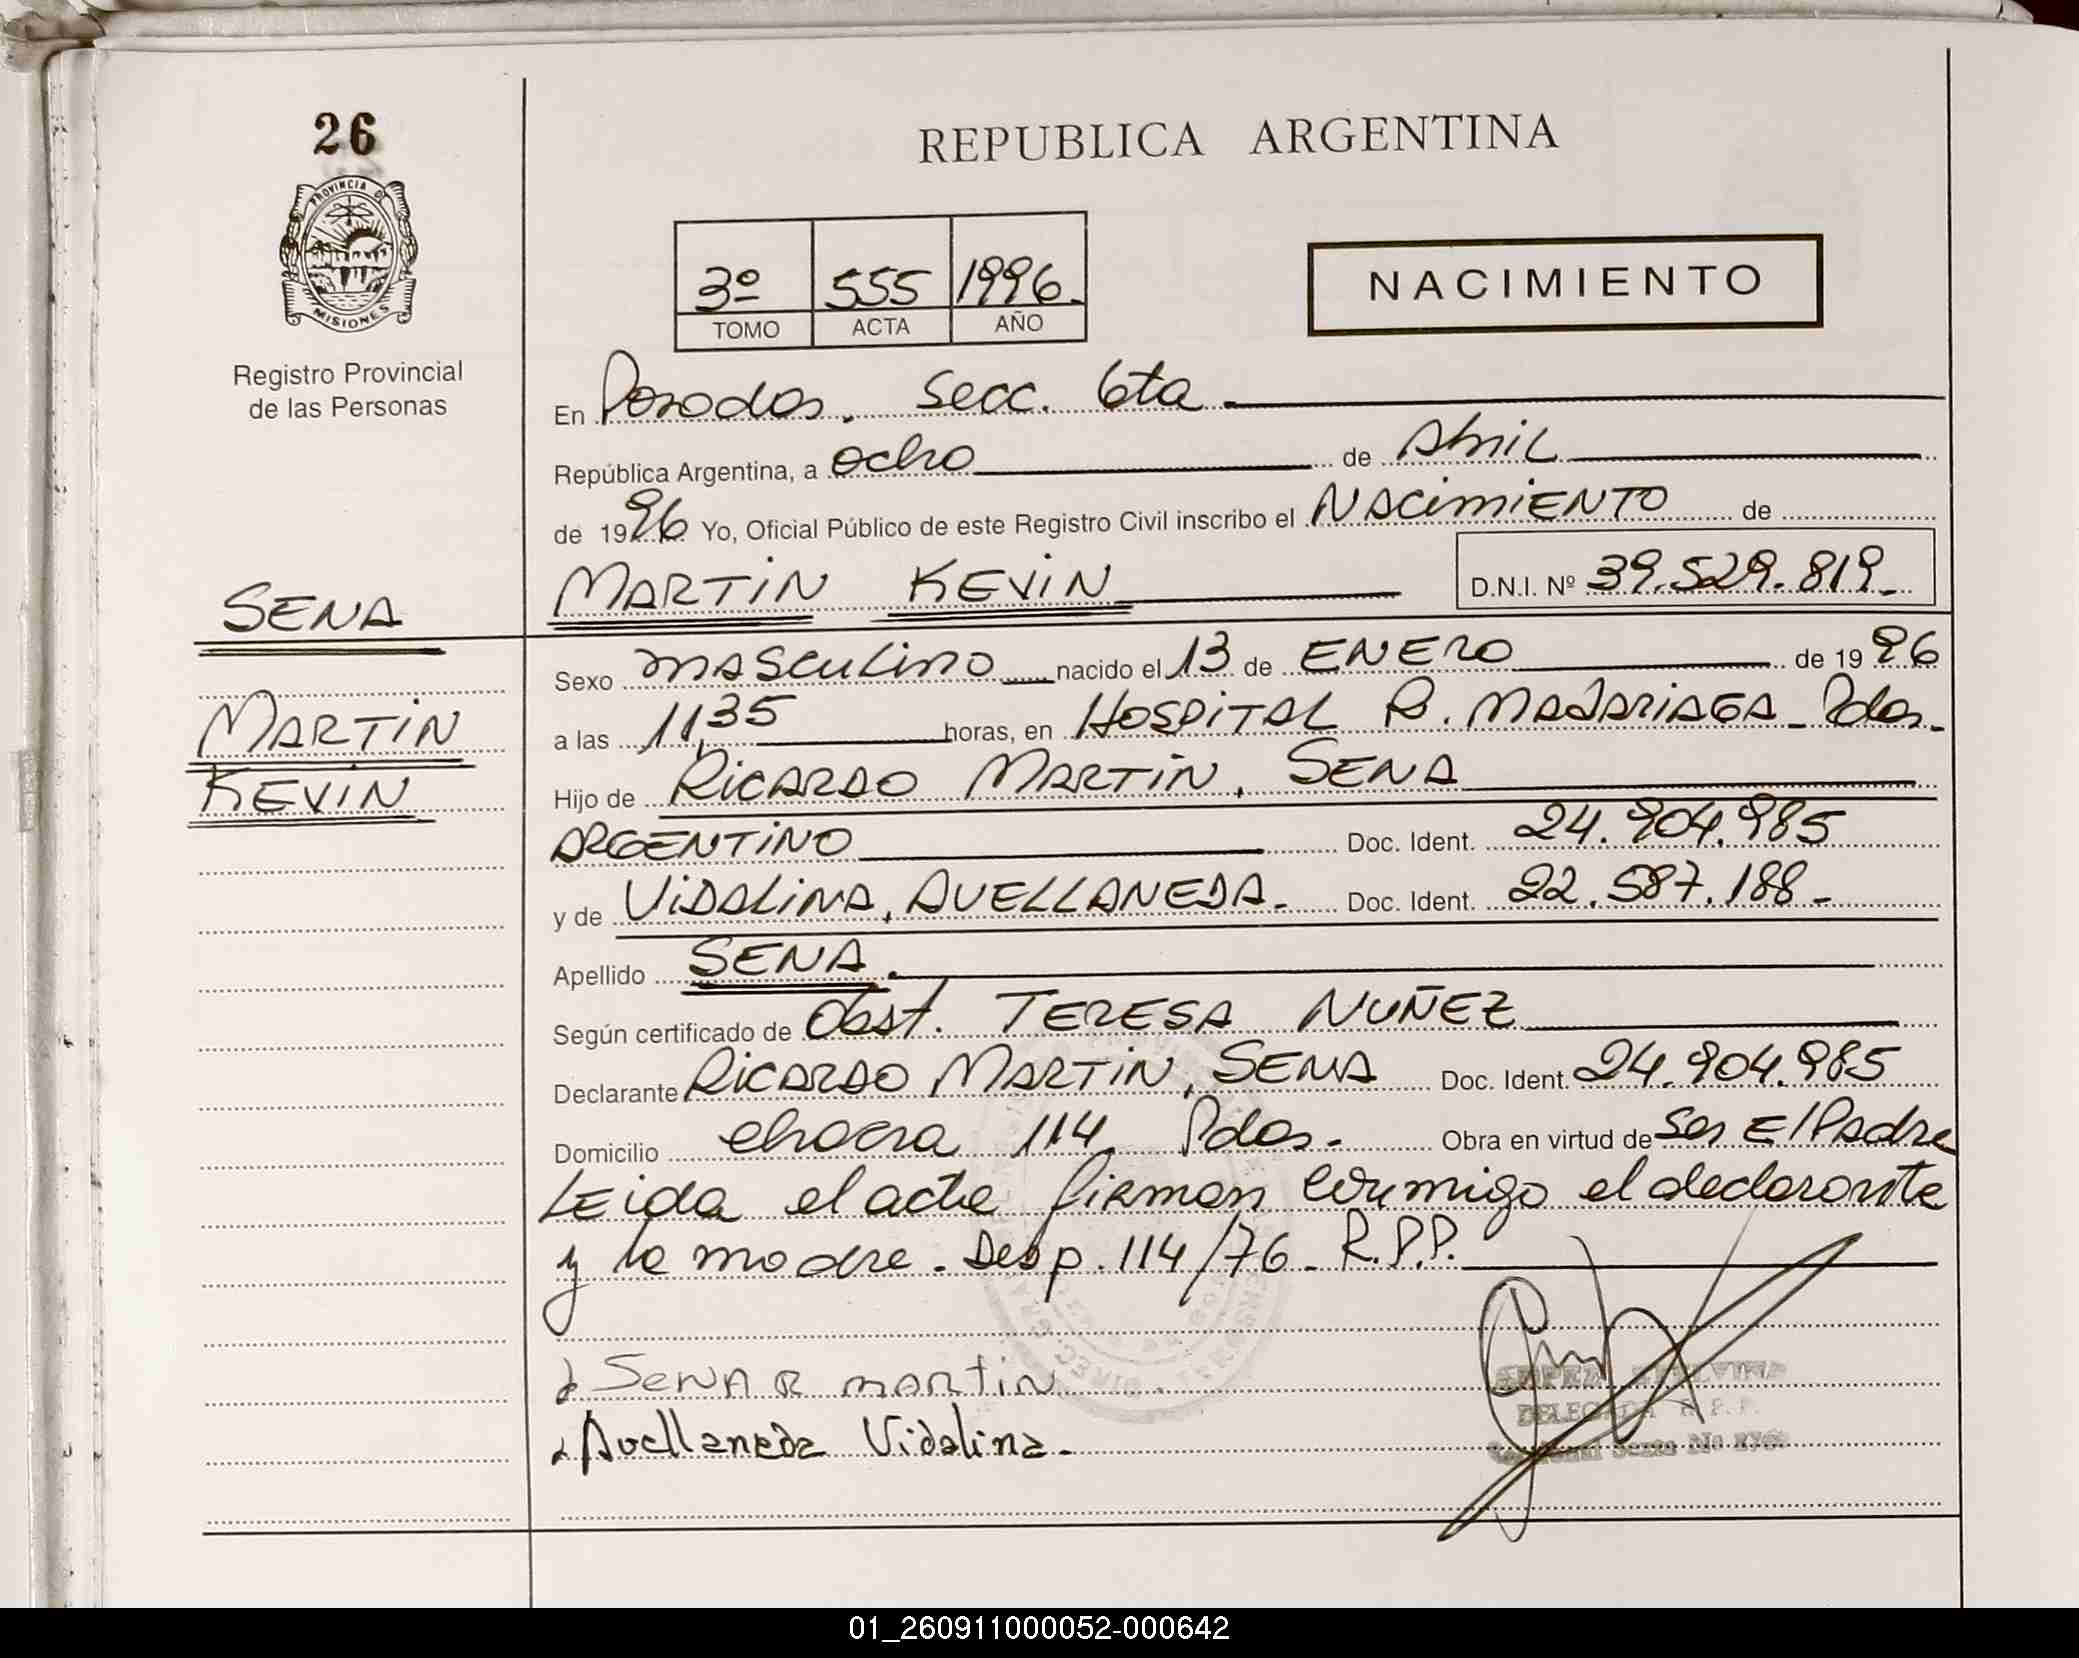 26
PROVINCIA D
MISIONES
Registro Provincial
de las Personas
SENA
MARTIN
KEVIN
REPUBLICA ARGENTINA
3º 555 1996.
TOMO ACTA AÑO
NACIMIENTO
En Posadas. Secc. 6ta.
República Argentina, a ocho de Abril
de 1996 Yo, Oficial Público de este Registro Civil inscribo el NACimiENTO de
MARTiN KEViN D.N.I. Nº 39.529.819.-
Sexo mASCULiNO nacido el 13 de ENERO de 1996
a las 11,35 horas, en HOSPiTAL R. MADARiAGA - Pdas.
Hijo de RiCARDO MARTiN, SENA
ARGENTiNO Doc. Ident. 24.904.985
y de ViDALiNA, AVELLANEDA.- Doc. Ident. 22.587.188.-
Apellido SENA.
Según certificado de Obst. TERESA NUÑEZ
Declarante RiCARDO MARTiN, SENA Doc. Ident. 24.904.985
Domicilio chacra 114 Pdas.- Obra en virtud de Ser El Padre
LEida el acta firman conmigo el declarante
y la madre. Desp. 114/76 - R.P.P.
SeNA R mARtiN
Avellaneda Vidalina.-
DELEGADA R.P.P.
01_260911000052-000642